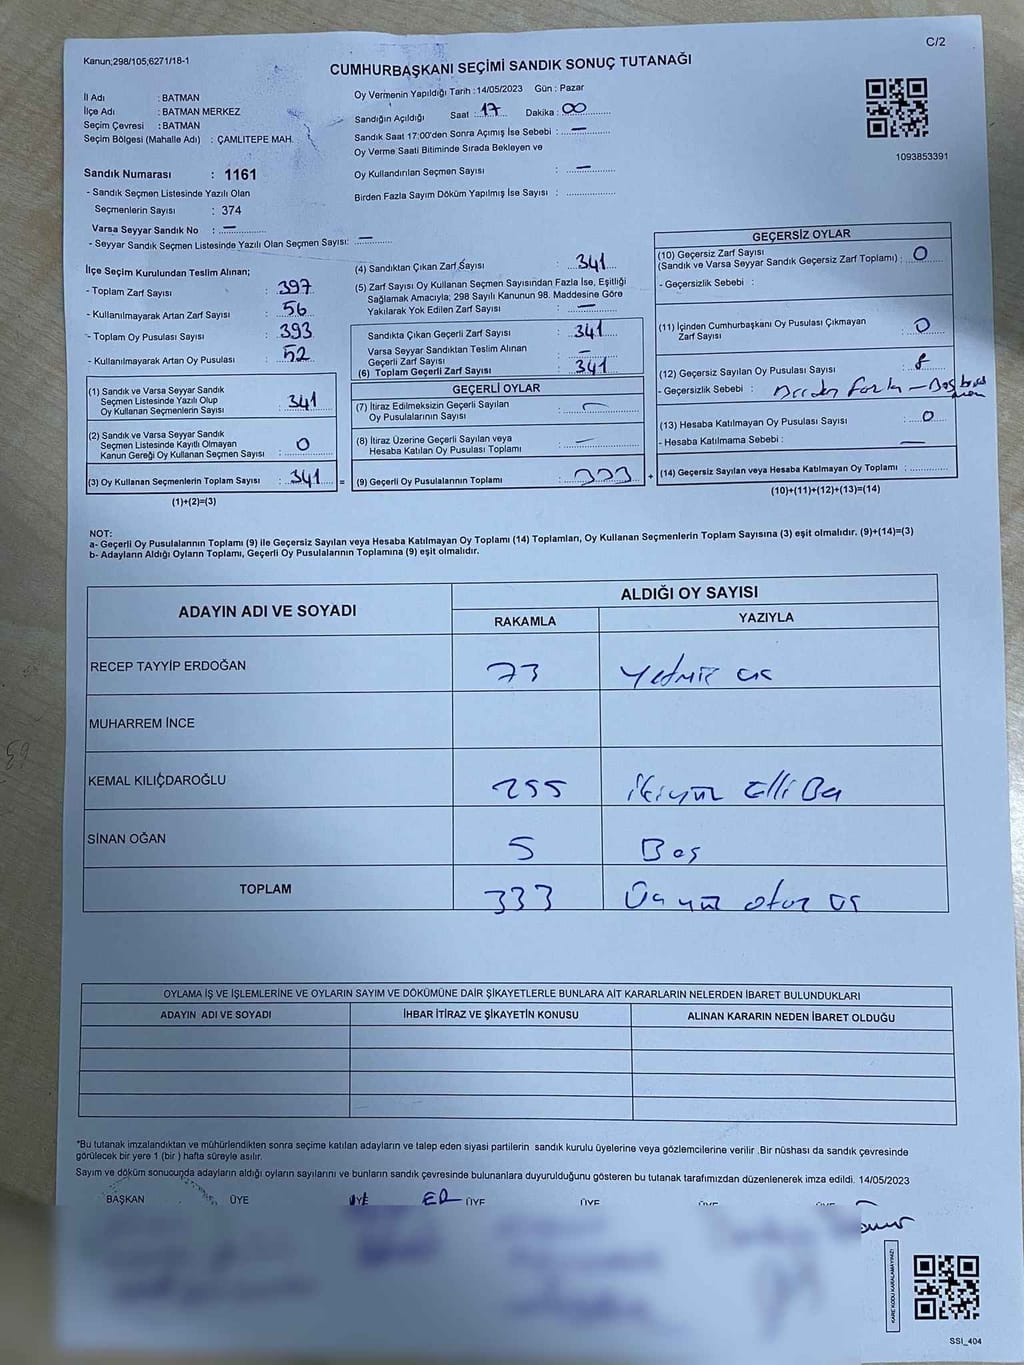 Kanun;298/105,6271/18-1
C/2
CUMHURBAŞKANI SEÇİMİ SANDIK SONUÇ TUTANAĞI
İl Adı : BATMAN
İlçe Adı : BATMAN MERKEZ
Seçim Çevresi : BATMAN
Seçim Bölgesi (Mahalle Adı) : ÇAMLITEPE MAH.
Sandık Numarası : 1161
- Sandık Seçmen Listesinde Yazılı Olan
Seçmenlerin Sayısı : 374
Varsa Seyyar Sandık No : —
- Seyyar Sandık Seçmen Listesinde Yazılı Olan Seçmen Sayısı: —
Oy Vermenin Yapıldığı Tarih : 14/05/2023 Gün : Pazar
Sandığın Açıldığı Saat : 17 Dakika : 00
Sandık Saat 17:00'den Sonra Açımış İse Sebebi : —
Oy Verme Saati Bitiminde Sırada Bekleyen ve
Oy Kullandırılan Seçmen Sayısı : —
Birden Fazla Sayım Döküm Yapılmış İse Sayısı :
1093853391
İlçe Seçim Kurulundan Teslim Alınan;
- Toplam Zarf Sayısı : 397
- Kullanılmayarak Artan Zarf Sayısı : 56
- Toplam Oy Pusulası Sayısı : 393
- Kullanılmayarak Artan Oy Pusulası : 52
(1) Sandık ve Varsa Seyyar Sandık
Seçmen Listesinde Yazılı Olup
Oy Kullanan Seçmenlerin Sayısı : 341
(2) Sandık ve Varsa Seyyar Sandık
Seçmen Listesinde Kayıtlı Olmayan
Kanun Gereği Oy Kullanan Seçmen Sayısı : 0
(3) Oy Kullanan Seçmenlerin Toplam Sayısı : 341 =
(1)+(2)=(3)
(4) Sandıktan Çıkan Zarf Sayısı : 341
(5) Zarf Sayısı Oy Kullanan Seçmen Sayısından Fazla İse, Eşitliği
Sağlamak Amacıyla; 298 Sayılı Kanunun 98. Maddesine Göre
Yakılarak Yok Edilen Zarf Sayısı : —
Sandıkta Çıkan Geçerli Zarf Sayısı : 341
Varsa Seyyar Sandıktan Teslim Alınan
Geçerli Zarf Sayısı : —
(6) Toplam Geçerli Zarf Sayısı : 341
GEÇERLİ OYLAR
(7) İtiraz Edilmeksizin Geçerli Sayılan
Oy Pusulalarının Sayısı : —
(8) İtiraz Üzerine Geçerli Sayılan veya
Hesaba Katılan Oy Pusulası Toplamı : —
(9) Geçerli Oy Pusulalarının Toplamı : 333 +
GEÇERSİZ OYLAR
(10) Geçersiz Zarf Sayısı
(Sandık ve Varsa Seyyar Sandık Geçersiz Zarf Toplamı) : 0
- Geçersizlik Sebebi :
(11) İçinden Cumhurbaşkanı Oy Pusulası Çıkmayan
Zarf Sayısı : 0
(12) Geçersiz Sayılan Oy Pusulası Sayısı : 8
- Geçersizlik Sebebi : Birden fazla —
(13) Hesaba Katılmayan Oy Pusulası Sayısı : 0
- Hesaba Katılmama Sebebi : —
(14) Geçersiz Sayılan veya Hesaba Katılmayan Oy Toplamı :
(10)+(11)+(12)+(13)=(14)
NOT:
a- Geçerli Oy Pusulalarının Toplamı (9) ile Geçersiz Sayılan veya Hesaba Katılmayan Oy Toplamı (14) Toplamları, Oy Kullanan Seçmenlerin Toplam Sayısına (3) eşit olmalıdır. (9)+(14)=(3)
b- Adayların Aldığı Oyların Toplamı, Geçerli Oy Pusulalarının Toplamına (9) eşit olmalıdır.
ADAYIN ADI VE SOYADI
ALDIĞI OY SAYISI
RAKAMLA YAZIYLA
RECEP TAYYİP ERDOĞAN 73 Yetmiş üç
MUHARREM İNCE
KEMAL KILIÇDAROĞLU 255 ikiyüz Elli Beş
SİNAN OĞAN 5 Beş
TOPLAM 333 Üç yüz otuz üç
OYLAMA İŞ VE İŞLEMLERİNE VE OYLARIN SAYIM VE DÖKÜMÜNE DAİR ŞİKAYETLERLE BUNLARA AİT KARARLARIN NELERDEN İBARET BULUNDUKLARI
ADAYIN ADI VE SOYADI İHBAR İTİRAZ VE ŞİKAYETİN KONUSU ALINAN KARARIN NEDEN İBARET OLDUĞU
*Bu tutanak imzalandıktan ve mühürlendikten sonra seçime katılan adayların ve talep eden siyasi partilerin sandık kurulu üyelerine veya gözlemcilerine verilir .Bir nüshası da sandık çevresinde
görülecek bir yere 1 (bir ) hafta süreyle asılır.
Sayım ve döküm sonucunda adayların aldığı oyların sayılarını ve bunların sandık çevresinde bulunanlara duyurulduğunu gösteren bu tutanak tarafımızdan düzenlenerek imza edildi. 14/05/2023
BAŞKAN ÜYE ÜYE ÜYE ÜYE
KARE KODU KARALAMAYINIZ!
SSI_404